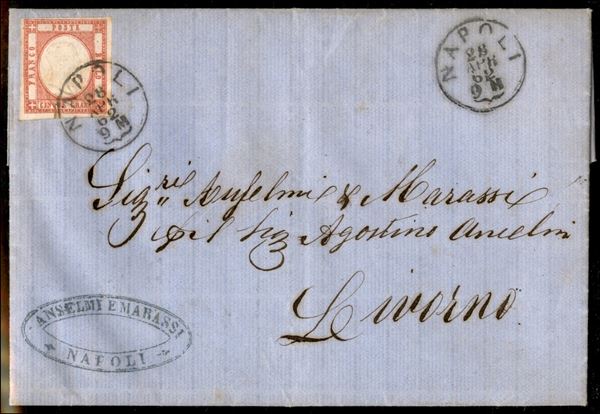 FRANCO
POSTA
NAPOLI
28
APR
62
9 M
NAPOLI
28
APR
62
9 M
Sig.ri Anselmi & Marassi
il Sig Agostino Anselmi
Livorno
ANSELMI E MARASSI
NAPOLI